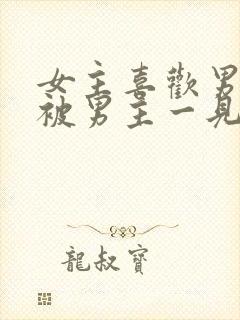 女主喜歡男
被男主一見
龍叔寶